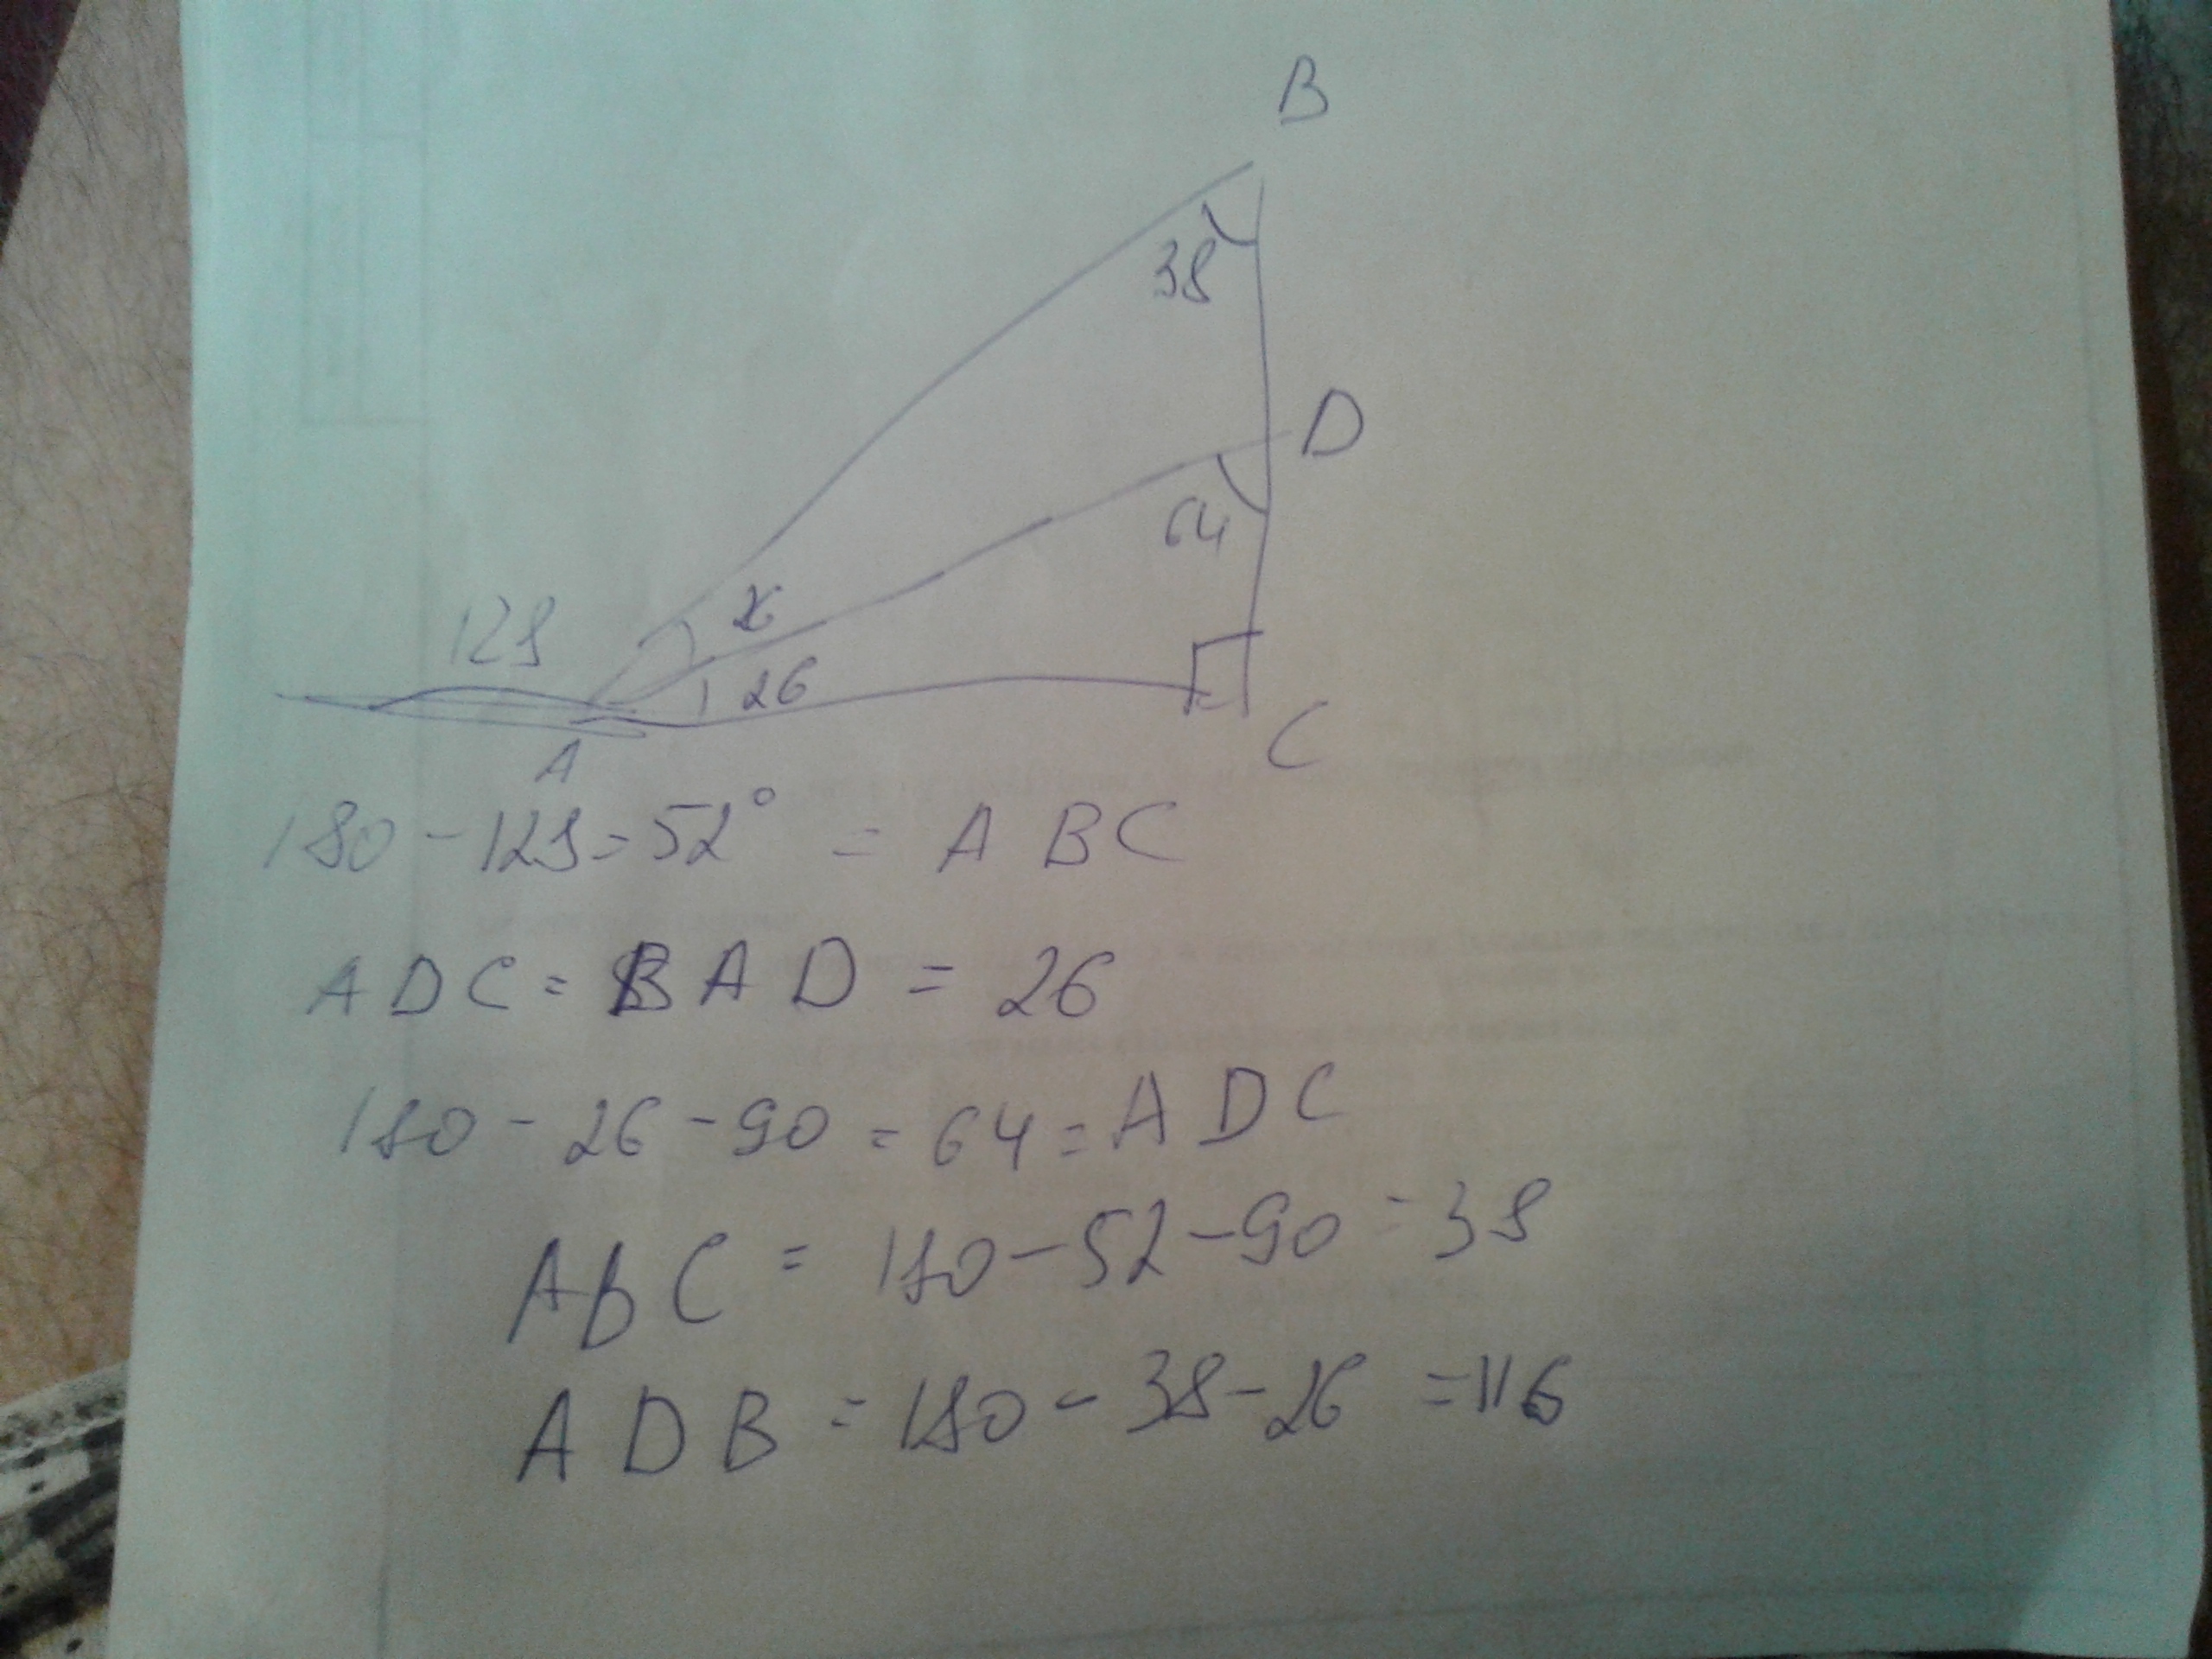 B
38
D
64
128
x
26
A
C
180 - 128 = 52° = A B C
A D C = B A D = 26
180 - 26 - 90 = 64 = A D C
A B C = 180 - 52 - 90 = 38
A D B = 180 - 38 - 26 = 116